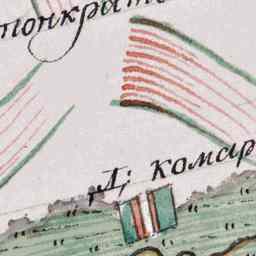 тонкрат
Д; комар